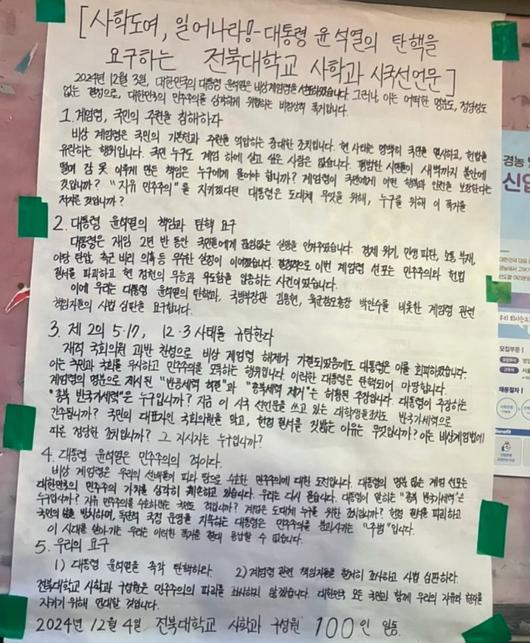 [사학도여, 일어나라!-대통령 윤석열의 탄핵을
요구하는 전북대학교 사학과 시국선언문]
2024년 12월 3일, 대한민국의 대통령 윤석열은 비상계엄령을 선포하였습니다. 그러나, 이는 어떠한 명분도, 정당성도
없는 행위로, 대한민국의 민주주의를 심각하게 위협하는 비상식적 폭거입니다.
1. 계엄령, 국민의 주권을 침해하다
비상 계엄령은 국민의 기본권과 주권을 억압하는 중대한 조치입니다. 현 사태는 명백히 국민을 멸시하고, 헌법을
유린하는 행위입니다. 국민 누구도 계엄 하에 살고 싶은 사람은 없습니다. 평범한 시민들이 새벽까지 불안에
떨며 잠 못 이루게 만든 책임은 누구에게 물어야 합니까? 계엄령이 국민에게 어떤 행복과 안전을 보장한다는
것입니까? "자유 민주주의"를 지키겠다던 대통령은 도대체 무엇을 위해, 누구를 위해 이 폭거를
저지른 것입니까?
2. 대통령 윤석열의 책임과 탄핵 요구
대통령은 재임 2년 반 동안 국민들에게 끊임없는 실망을 안겨주었습니다. 경제 위기, 민생 파탄, 소통 부재,
야당 탄압, 측근 비리 의혹 등 무수한 실정이 이어졌습니다. 이번 계엄령 선포는 민주주의와 헌법
질서를 파괴하고 현 정권의 무능과 무도함을 입증하는 사건이었습니다.
이에 우리는 대통령 윤석열의 탄핵과, 국방부장관 김용현, 육군참모총장 박안수를 비롯한 계엄령 관련
책임자들의 사법 심판을 요구합니다.
3. 제 2의 5·17, 12·3 사태를 규탄한다
재적 국회의원 과반 찬성으로 비상 계엄령 해제가 가결되었음에도 대통령은 이를 회피하였습니다.
이는 국민과 국회를 무시하고 민주주의를 모독하는 행위입니다. 이러한 대통령은 탄핵되어 마땅합니다.
계엄령의 명분으로 제시된 "반국가세력 척결"과 "종북세력 제거"는 허황된 주장입니다. 대통령이 주장하는
"종북 반국가세력"은 누구입니까? 지금 이 시국 선언문을 쓰고 있는 대학생들조차도 반국가세력으로
간주됩니까? 국민의 대표기관인 국회의원들을 막고, 헌정 질서를 짓밟는 이유는 무엇입니까? 이는 비상계엄법에
따른 정당한 조치입니까? 그 지시자는 누구입니까?
4. 대통령 윤석열은 민주주의의 적이다.
비상 계엄령은 우리의 선배들이 피와 땀으로 수호한 민주주의에 대한 도전입니다. 대통령의 명분 없는 계엄 선포는
대한민국의 민주주의 가치를 심각히 훼손하고 있습니다. 우리는 다시 묻습니다. 대통령이 말하는 "종북 반국가세력"은
누구입니까? 자유 민주주의를 수호하려는 것입니까? 계엄은 도대체 누구를 위한 조치입니까? 헌정 질서를 파괴하고
국민의 삶을 방치하며, 독단적 국정 운영을 지속하는 대통령은 민주주의를 붕괴시키는 "주범"입니다.
이 시대를 살아가는 우리는 이러한 폭거를 절대 용납할 수 없습니다.
5. 우리의 요구
1) 대통령 윤석열은 즉각 탄핵하라. 2) 계엄령 관련 책임자들을 철저히 조사하고 사법 심판하라.
전북대학교 사학과 구성원은 민주주의의 파괴를 좌시하지 않겠습니다. 대한민국 모든 국민과 함께 우리의 자유와 헌법을
지키기 위해 연대할 것입니다.
2024년 12월 4일 전북대학교 사학과 구성원 100인 일동
경농
신입
모집부문
채용절차
Benefit